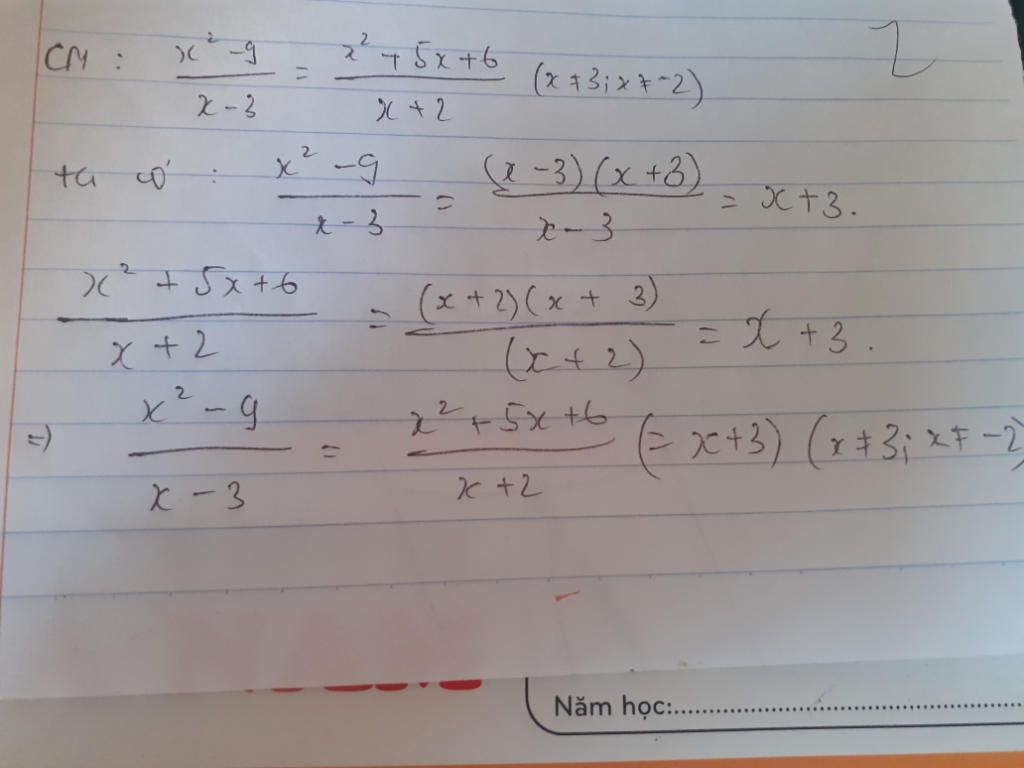 2
CM : x² - 9 / x - 3 = x² + 5x + 6 / x + 2 (x ≠ 3; x ≠ -2)
ta có : x² - 9 / x - 3 = (x - 3)(x + 3) / x - 3 = x + 3.
x² + 5x + 6 / x + 2 = (x + 2)(x + 3) / (x + 2) = x + 3.
=> x² - 9 / x - 3 = x² + 5x + 6 / x + 2 (= x + 3) (x ≠ 3; x ≠ -2)
Năm học: